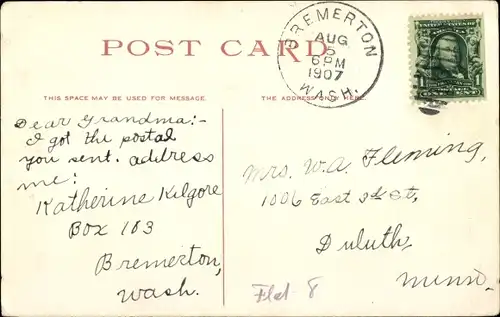 POST CARD
BREMERTON
AUG
5
6 PM
1907
WASH.
THIS SPACE MAY BE USED FOR MESSAGE.
THE ADDRESS ONLY HERE.
Dear Grandma:-
I got the postal
you sent. address
me:
Katherine Kilgore
Box 183
Bremerton,
Wash.
Mrs. W.A. Fleming,
1006 East 3rd St,
Duluth,
Minn.
Flat 8